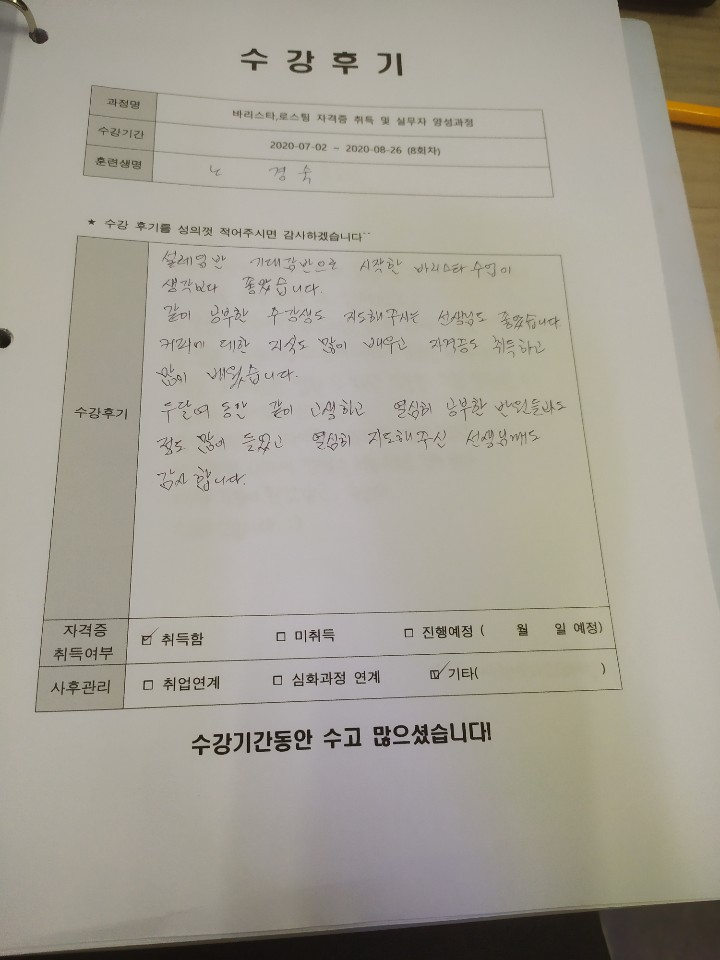 수 강 후 기
과정명 바리스타,로스팅 자격증 취득 및 실무자 양성과정
수강기간 2020-07-02 ~ 2020-08-26 (8회차)
훈련생명 노 경 숙
★ 수강 후기를 성의껏 적어주시면 감사하겠습니다^^
설레임반 기대감반으로 시작한 바리스타 수업이
생각보다 좋았습니다.
같이 공부한 수강생도 지도해주시는 선생님도 좋았습니다
커피에 대한 지식도 많이 배우고 자격증도 취득하고
많이 배웠습니다.
수강후기
두달여 동안 같이 고생하고 열심히 공부한 반원들과도
정도 많이 들었고 열심히 지도해주신 선생님께도
감사합니다.
자격증
취득여부
☑ 취득함 □ 미취득 □ 진행예정 ( 월 일 예정)
사후관리 □ 취업연계 □ 심화과정 연계 ☑ 기타( )
수강기간동안 수고 많으셨습니다!